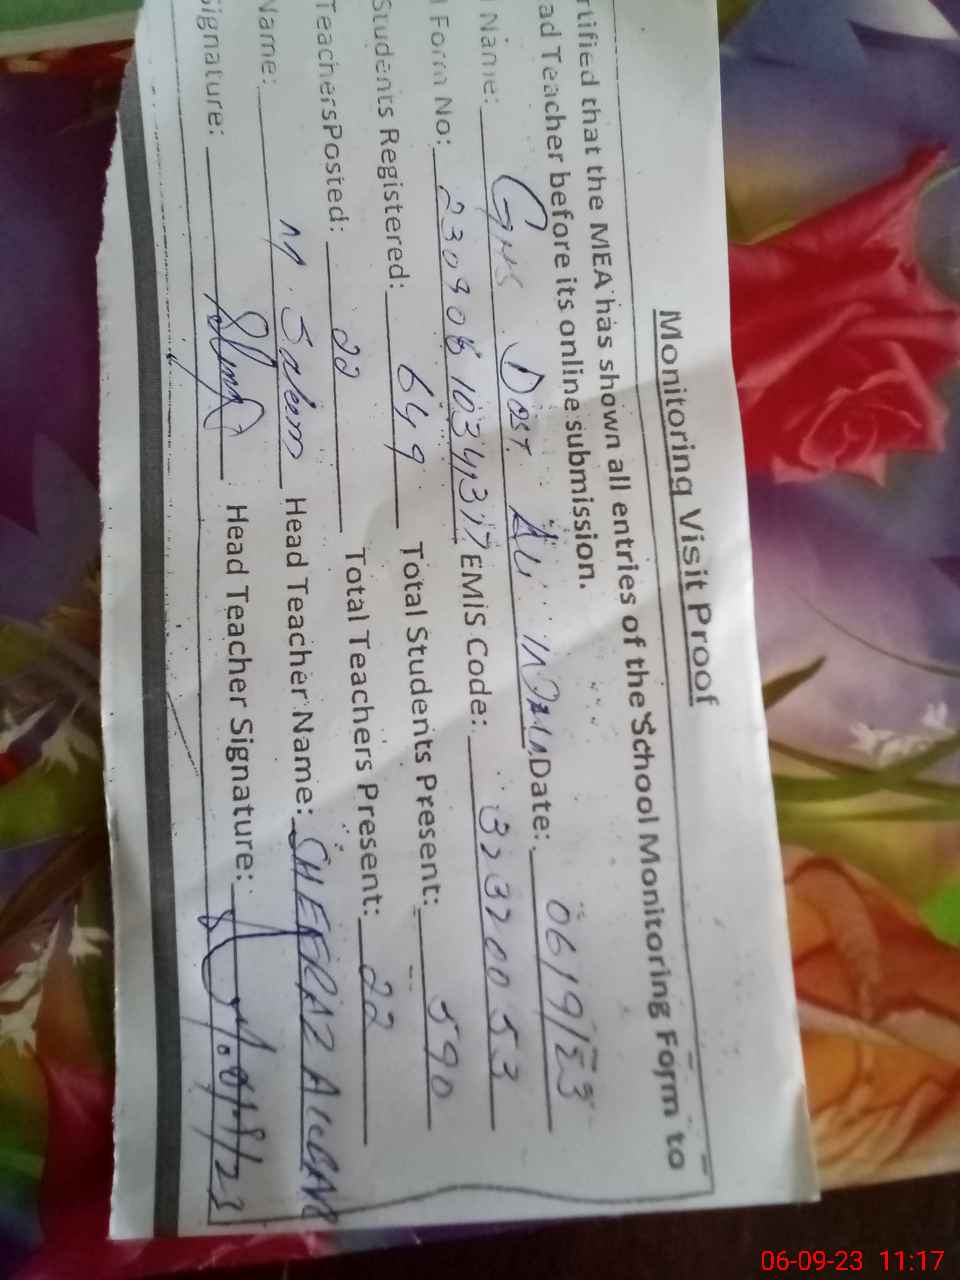 Monitoring Visit Proof
rtified that the MEA has shown all entries of the School Monitoring Form to
ad Teacher before its online submission.
Name: GHS Dost Ali Date: 06/9/23
Form No: EMIS Code: 32320053
Students Registered: 649 Total Students Present: 590
TeachersPosted: 22 Total Teachers Present: 22
Name: M. Saleem Head Teacher Name: SHEERAZ
Signature: Head Teacher Signature:
06-09-23 11:17